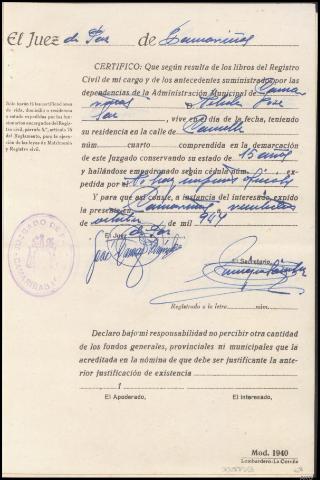 El Juez de Paz de Camariñas
CERTIFICO: Que según resulta de los libros del Registro
Civil de mi cargo y de los antecedentes suministrados por las
dependencias de la Administración Municipal de Cama-
riñas
vive en día de la fecha, teniendo
su residencia en la calle de Camelle
número cuarto comprendida en la demarcación
de este Juzgado conservando su estado de
y hallándose empadronado según cédula núm. ex-
pedida por
Y para que así conste, a instancia del interesado expido
la presente en Camariñas
de mil
El Juez
de Paz
El Secretario,
Registrado a la letra núm.
Solo harán fe las certificaciones
de vida, domicilio o residencia
o estado expedidas por los fun-
cionarios encargados del Regis-
tro civil, párrafo 8.º, artículo 75
del Reglamento, para la ejecu-
ción de las leyes de Matrimonio
y Registro civil.
JUZGADO DE
CAMARIÑAS
Declaro bajo mi responsabilidad no percibir otra cantidad
de los fondos generales, provinciales ni municipales que la
acreditada en la nómina de que debe ser justificante la ante-
rior justificación de existencia
El Apoderado, El Interesado,
Mod. 1940
Lombardero-La Coruña